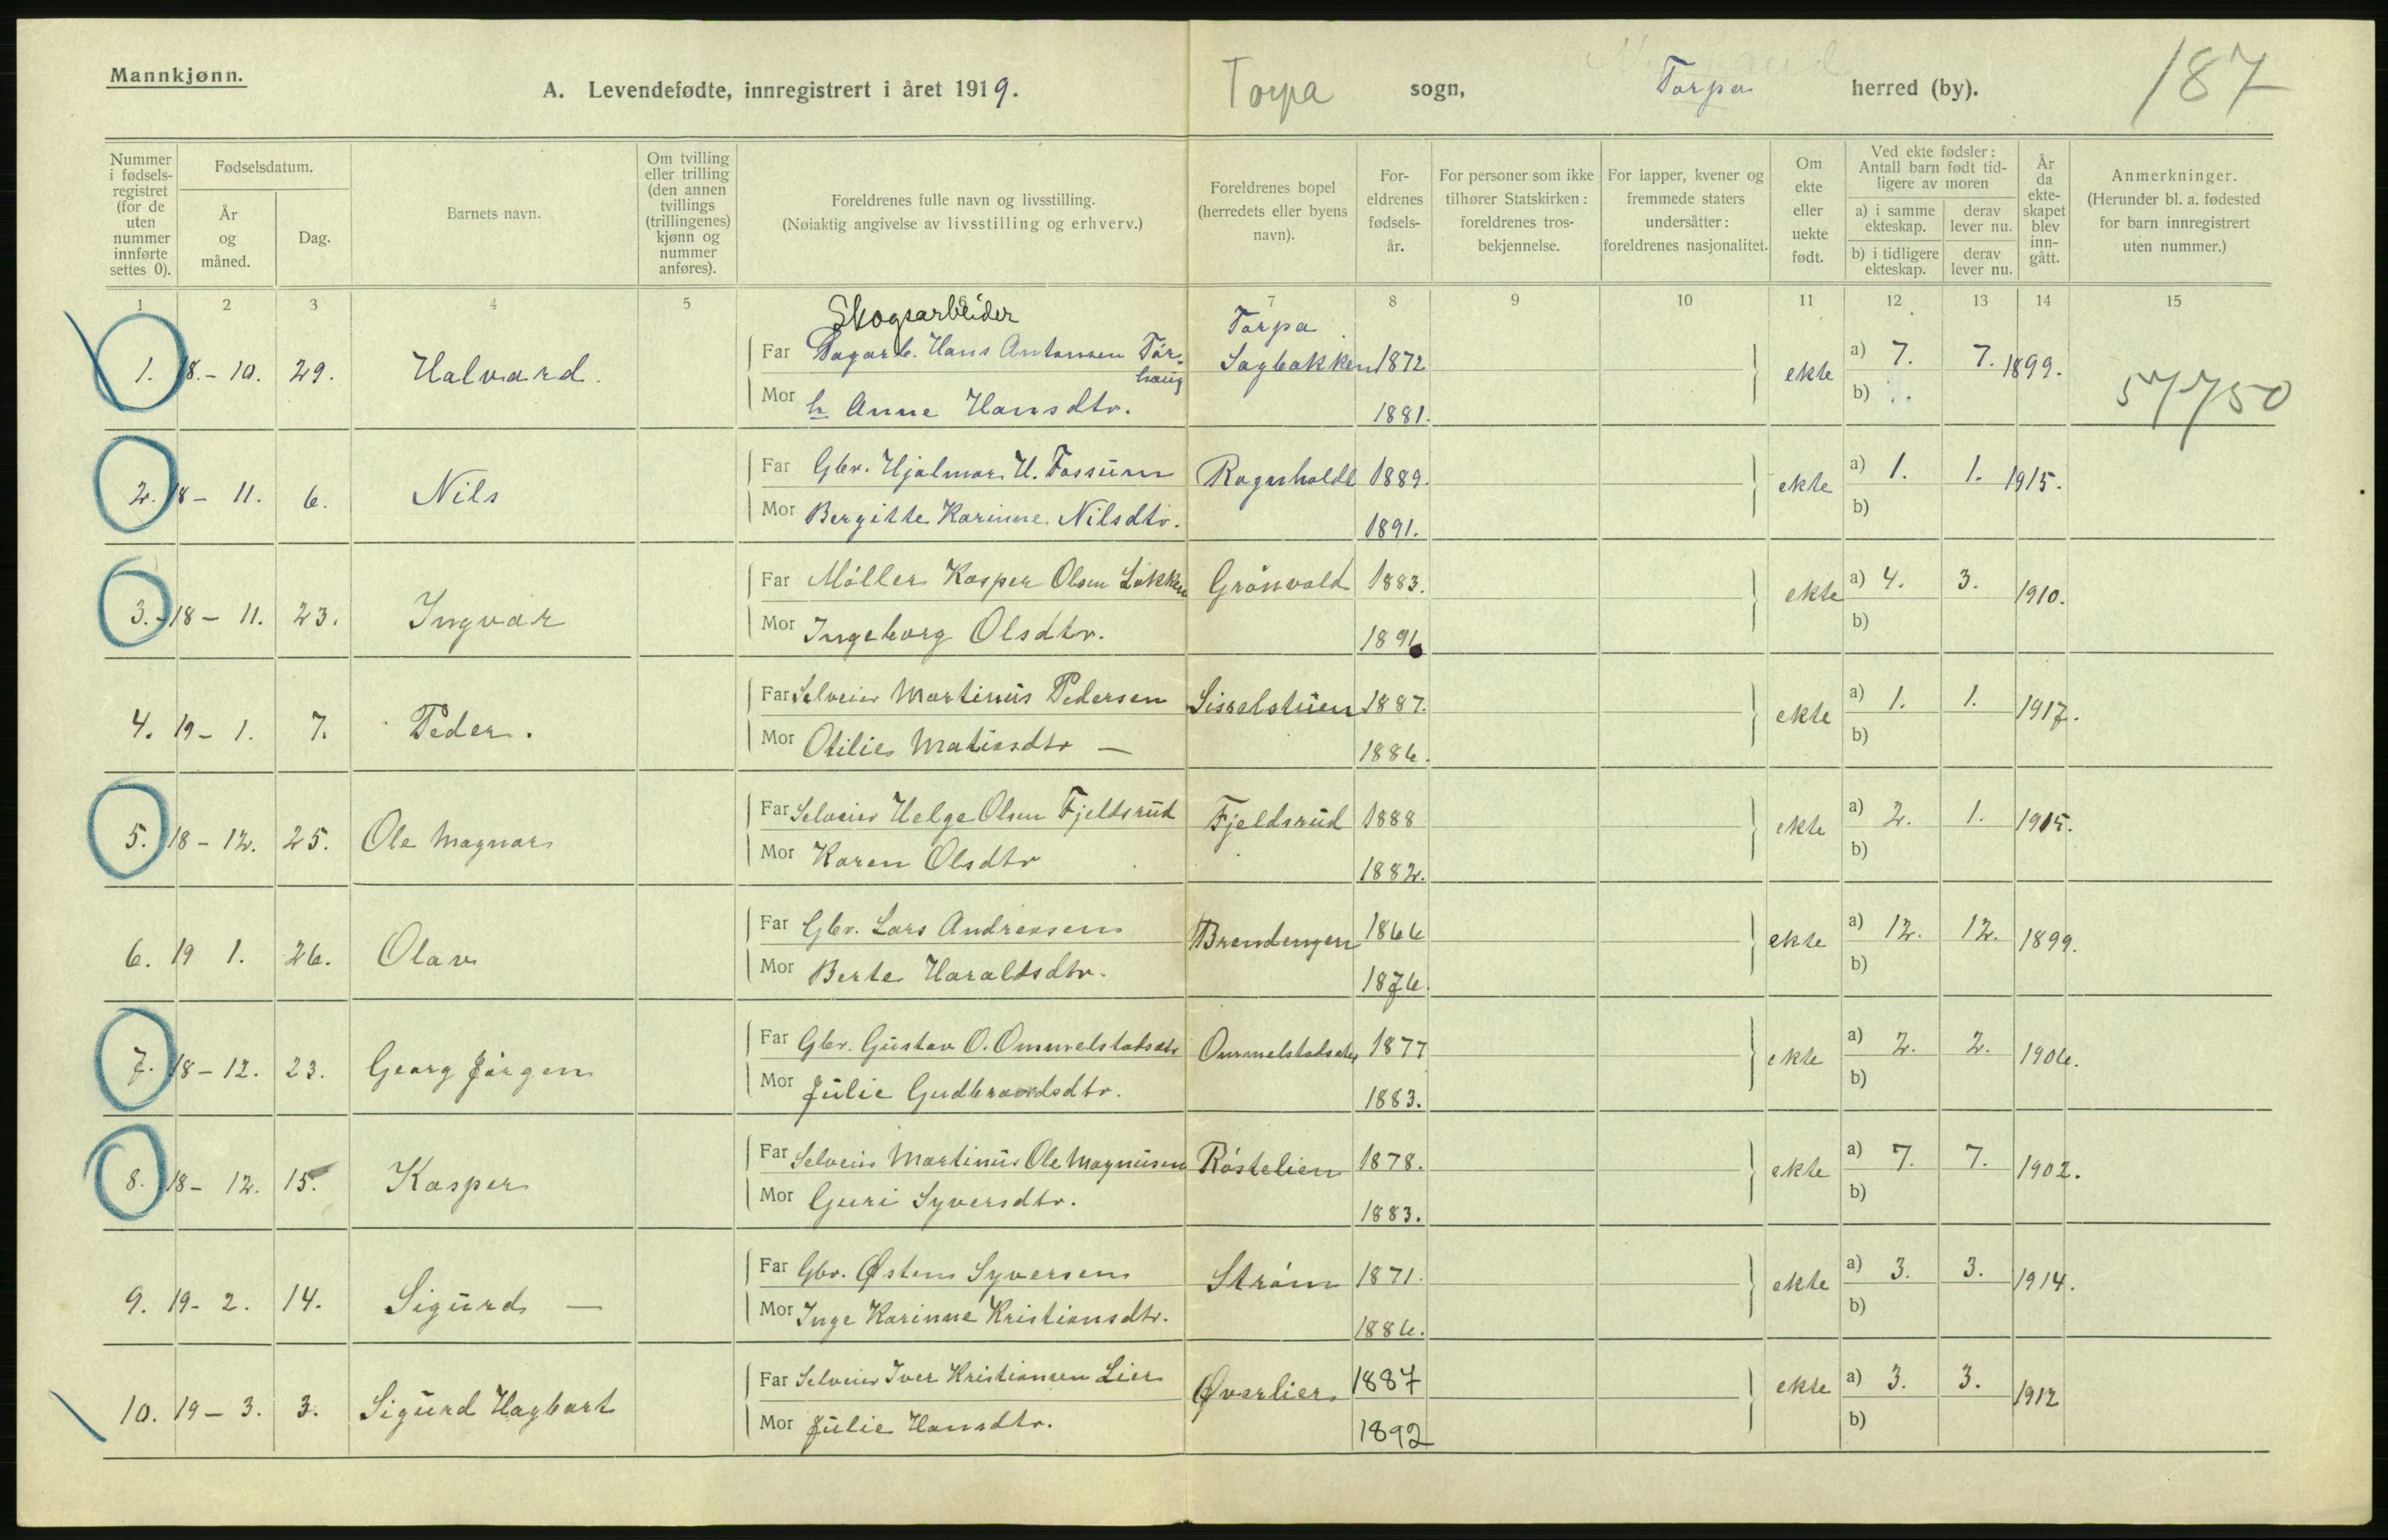 Mannkjønn.
A. Levendefødte, innregistrert i året 1919. Torpa sogn, Torpa herred (by). 187
Nummer i fødselsregistret (for de uten nummer innførte settes 0).
Fødselsdatum.
År og måned.
Dag.
Barnets navn.
Om tvilling eller trilling (den annen tvillings (trillingenes) kjønn og nummer anføres).
Foreldrenes fulle navn og livsstilling.
(Nøiaktig angivelse av livsstilling og erhverv.)
Foreldrenes bopel (herredets eller byens navn).
Foreldrenes fødselsår.
For personer som ikke tilhører Statskirken: foreldrenes trosbekjennelse.
For lapper, kvener og fremmede staters undersåtter: foreldrenes nasjonalitet.
Om ekte eller uekte født.
Ved ekte fødsler: Antall barn født tidligere av moren
a) i samme ekteskap. derav lever nu.
b) i tidligere ekteskap. derav lever nu.
År da ekteskapet blev inngått.
Anmerkninger.
(Herunder bl. a. fødested for barn innregistrert uten nummer.)
1 2 3 4 5 7 8 9 10 11 12 13 14 15
Skogsarbeider Torpa
1. 18.- 10. 29. Halvard. Far Dagarb. Hans Antonsen Tórhaug Sagbakken 1872 ekte a) 7. 7. 1899. 57750
Mor h Anne Hansdtr. 1881. b)
2. 18 - 11. 6. Nils Far Gbr. Hjalmar H. Fossum Ragnhaldt 1889. ekte a) 1. 1. 1915.
Mor Bergitte Karinne Nilsdtr. 1891. b)
3. 18 - 11. 23. Ingvar Far Móller Kasper Olsen Løkken Grónvold 1883. ekte a) 4. 3. 1910.
Mor Ingeborg Olsdtr. 1891 b)
4. 19 - 1. 7. Peder. Far Selveier Martinus Pedersen Sisselstuen 1887. ekte a) 1. 1. 1917.
Mor Otilie Matiasdtr — 1886. b)
5. 18 - 12. 25. Ole Magnar Far Selveier Helge Olsen Fjeldsrud Fjeldsrud 1888 ekte a) 2. 1. 1915.
Mor Karen Olsdtr 1882. b)
6. 19 1. 26. Olav Far Gbr. Lars Andreasen Brendengen 1866 ekte a) 12. 12. 1899.
Mor Berte Haraldsdtr. 1876. b)
7. 18 - 12. 23. Georg Jórgen Far Gbr. Gustav O. Ommelstadsæt Ommelstadsæter 1877 ekte a) 2. 2. 1906.
Mor Julie Gudbrandsdtr. 1883. b)
8. 18 - 12. 15. Kasper Far Selveier Martinus Ole Magnusen Róstelien 1878. ekte a) 7. 7. 1902.
Mor Guri Syversdtr. 1883. b)
9. 19 - 2. 14. Sigurd — Far Gbr. Østen Syversen Stróm 1871. ekte a) 3. 3. 1914.
Mor Inge Karinne Kristiansdtr. 1886. b)
10. 19 - 3. 3. Sigurd Hagbart Far Selveier Iver Kristiansen Lier Øverlier 1887 ekte a) 3. 3. 1912
Mor Julie Hansdtr. 1892 b)